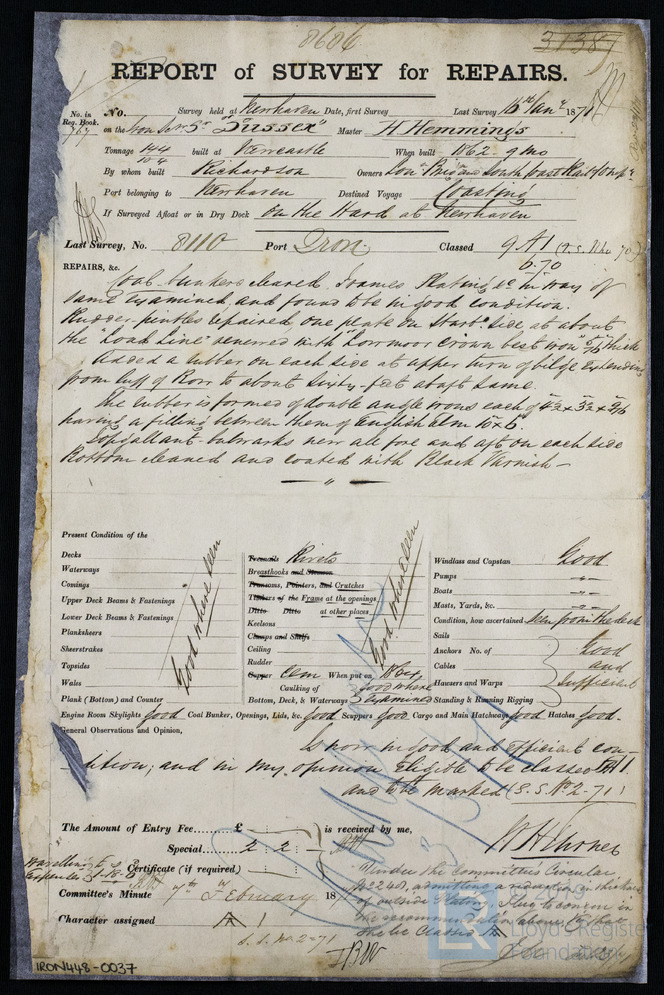 8606
31381
REPORT of SURVEY for REPAIRS.
No. in Reg. Book. No. Survey held at Newhaven Date, first Survey Last Survey 16th Jany 1871
767 on the Iron Scr Sr "Sussex" Master H Hemmings
Tonnage 144 104 built at Newcastle When built 1862 - 9 mo
By whom built Richardson Owners Lon Brigtn and South Coast Rail
Port belonging to Newhaven Destined Voyage Coasting
If Surveyed Afloat or in Dry Dock On the Hard at Newhaven
Last Survey, No. 8110 Port Iron Classed 9 A1
6.70
REPAIRS, &c.
Coal bunkers cleared Frames Plating &c in way of
same examined and found to be in good condition.
Rudder pintles repaired one plate on Starbd side at about
the "Load Line" renewed with "Lowmoor crown best iron" thick
Added a rubber on each side at upper turn of bilge extending
from luff of Bow to about sixty feet abaft same.
The rubber is formed of double angle irons each of 4½ x 3½ x
having a filling between them of English Elm 10 x 6"
Topgallant bulwarks new all fore and aft on each side
Bottom cleaned and coated with Black Varnish -
Present Condition of the
Decks
Waterways
Comings
Upper Deck Beams & Fastenings
Lower Deck Beams & Fastenings
Planksheers
Sheerstrakes
Topsides
Wales
Plank (Bottom) and Counter
Good where seen
Treenails Rivets
Breasthooks and Stemson
Transoms, Pointers, and Crutches
Timbers of the Frame at the openings
Ditto Ditto at other places
Keelsons
Clamps and Shelfs
Ceiling
Rudder
Copper Cem When put on
Caulking of Bottom, Deck, & Waterways good where examined
Good where seen
Windlass and Capstan Good
Pumps -"-
Boats -"-
Masts, Yards, &c. -"-
Condition, how ascertained Seen from the deck
Sails
Anchors No. of
Cables
Hausers and Warps
Standing & Running Rigging
Good and sufficient
Engine Room Skylights good Coal Bunker, Openings, Lids, &c. good Scuppers good Cargo and Main Hatchways good Hatches good.
General Observations and Opinion,
Is now in good and efficient con-
-dition; and in my opinion eligible to be classed A1
and to be marked (S.S. No 2-71)
The Amount of Entry Fee...... £ is received by me,
Special...... 2 2
Travelling Expenses £ 1.18.6 Certificate (if required)
Committee's Minute 7th February 18
Character assigned A 1
S.S. No 2-71
Under the Committee's Circular
No 2240, admitting a reduction in thickness
of outside plating
the recommendation above
she be classed A
© 2020
Lloyd's Register
Foundation
IRON448-0037